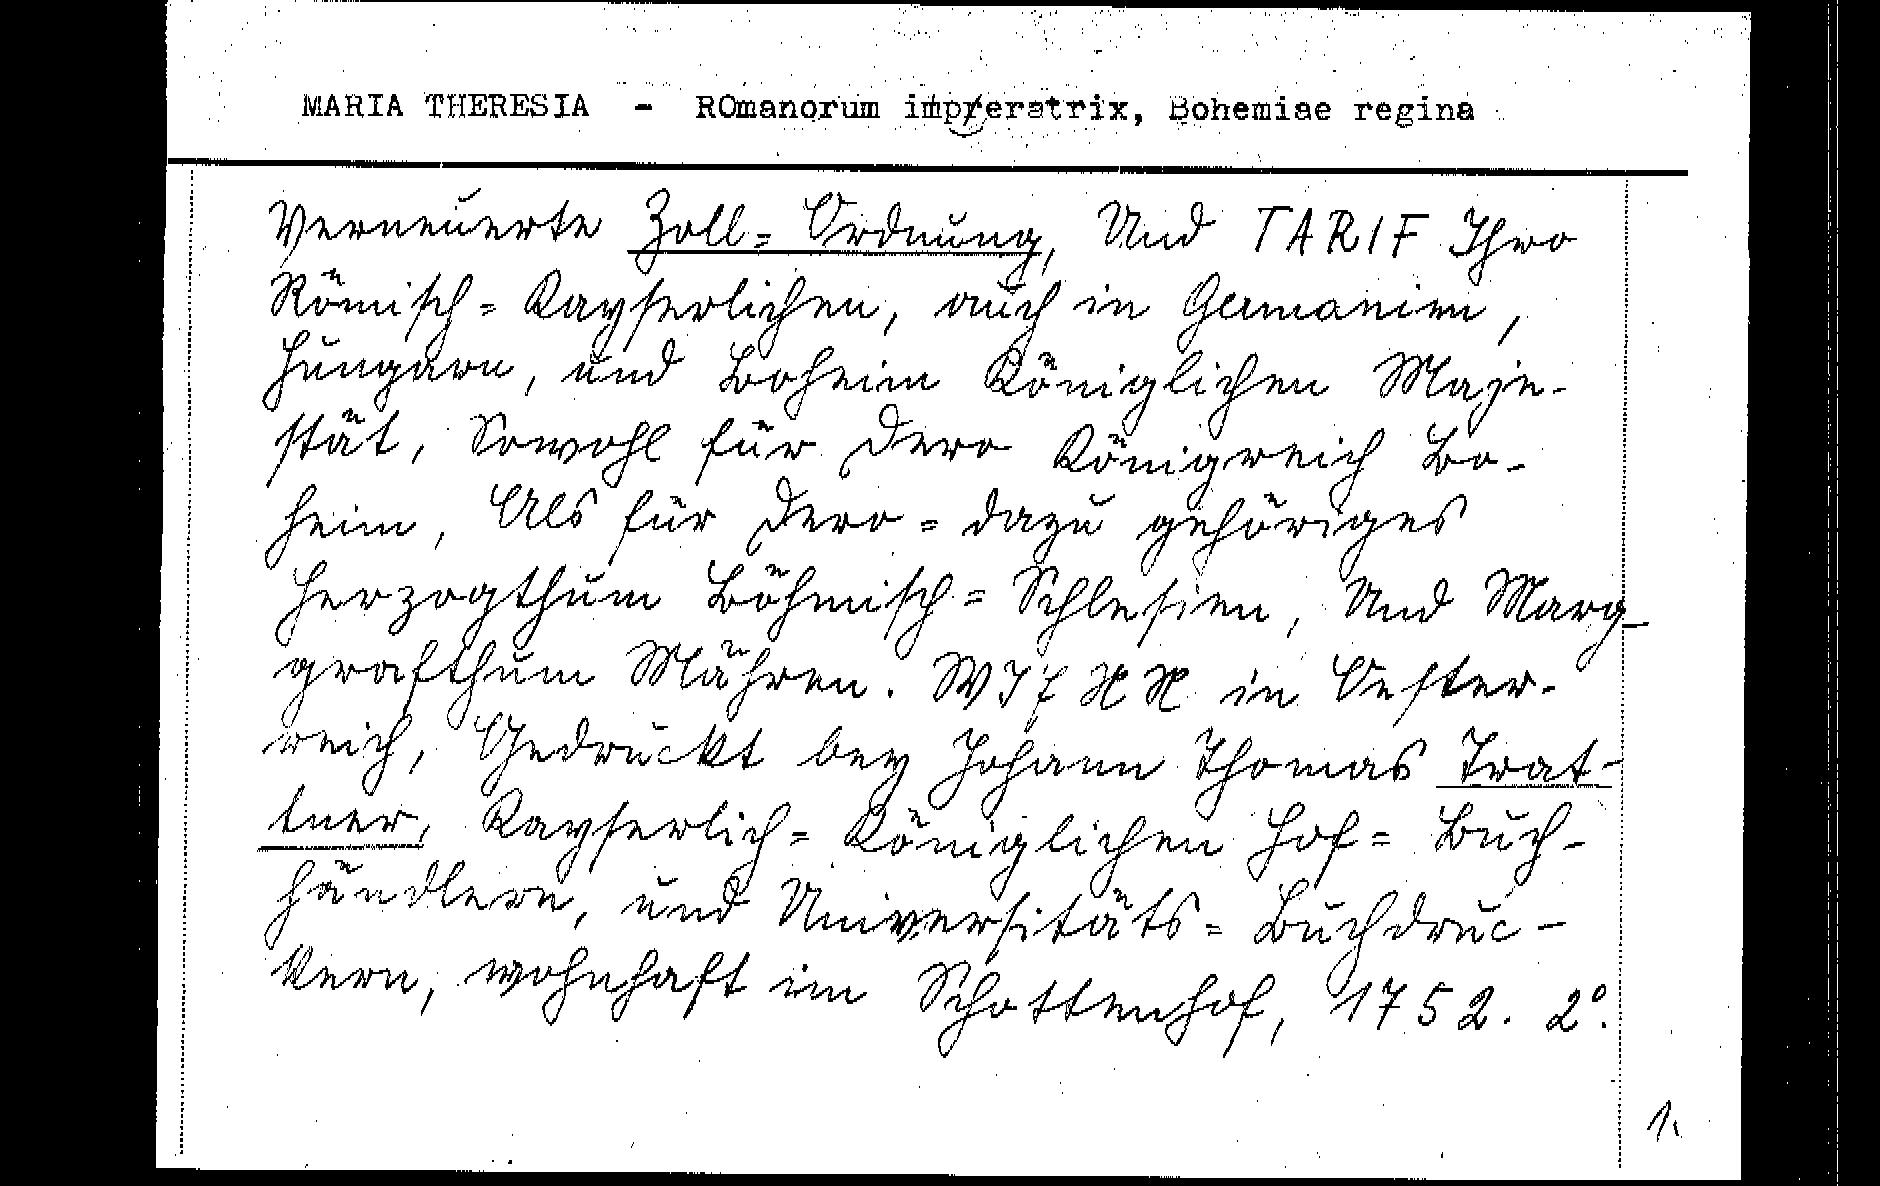 MARIA THERESIA - ROmanorum impreratrix, Bohemiae regina
Verneuerte Zoll= Ordnung, Und TARIF Ihro
Römisch= Kayserlichen, auch in Germanien,
Hungarn, und Boheim Königlichen Maje-
stät, Sowohl für Dero Königreich Bo-
heim, Als für Dero= dazu gehöriges
Herzogthum Böhmisch= Schlesien, Und Marg-
grafthum Mähren. WIENN in Oester-
reich, Gedruckt bey Johann Thomas Trat-
tner, Kayserlich= Königlichen Hof= Buch-
händlern, und Universitäts= Buchdruc-
kern, wohnhaft im Schottenhof, 1752. 2°.
1.